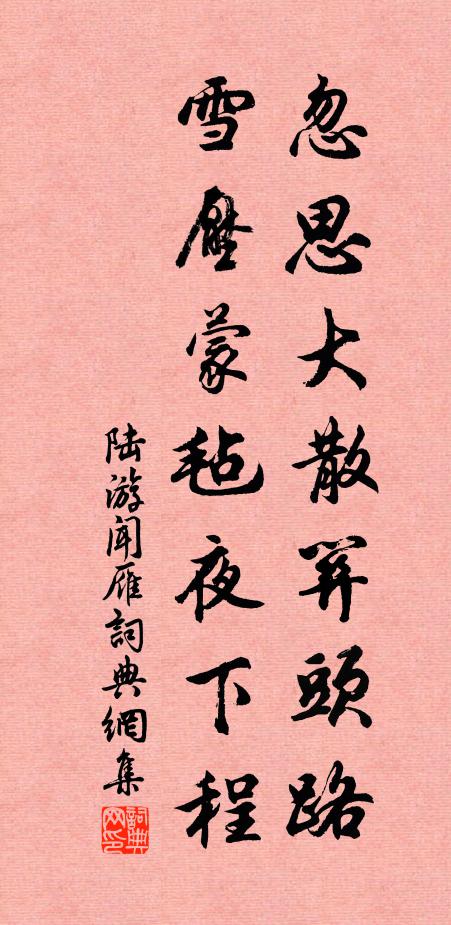 忽思大散関頭路
雪壓蒙毡夜下程
陆游闻雁詞典網集
詞典网印